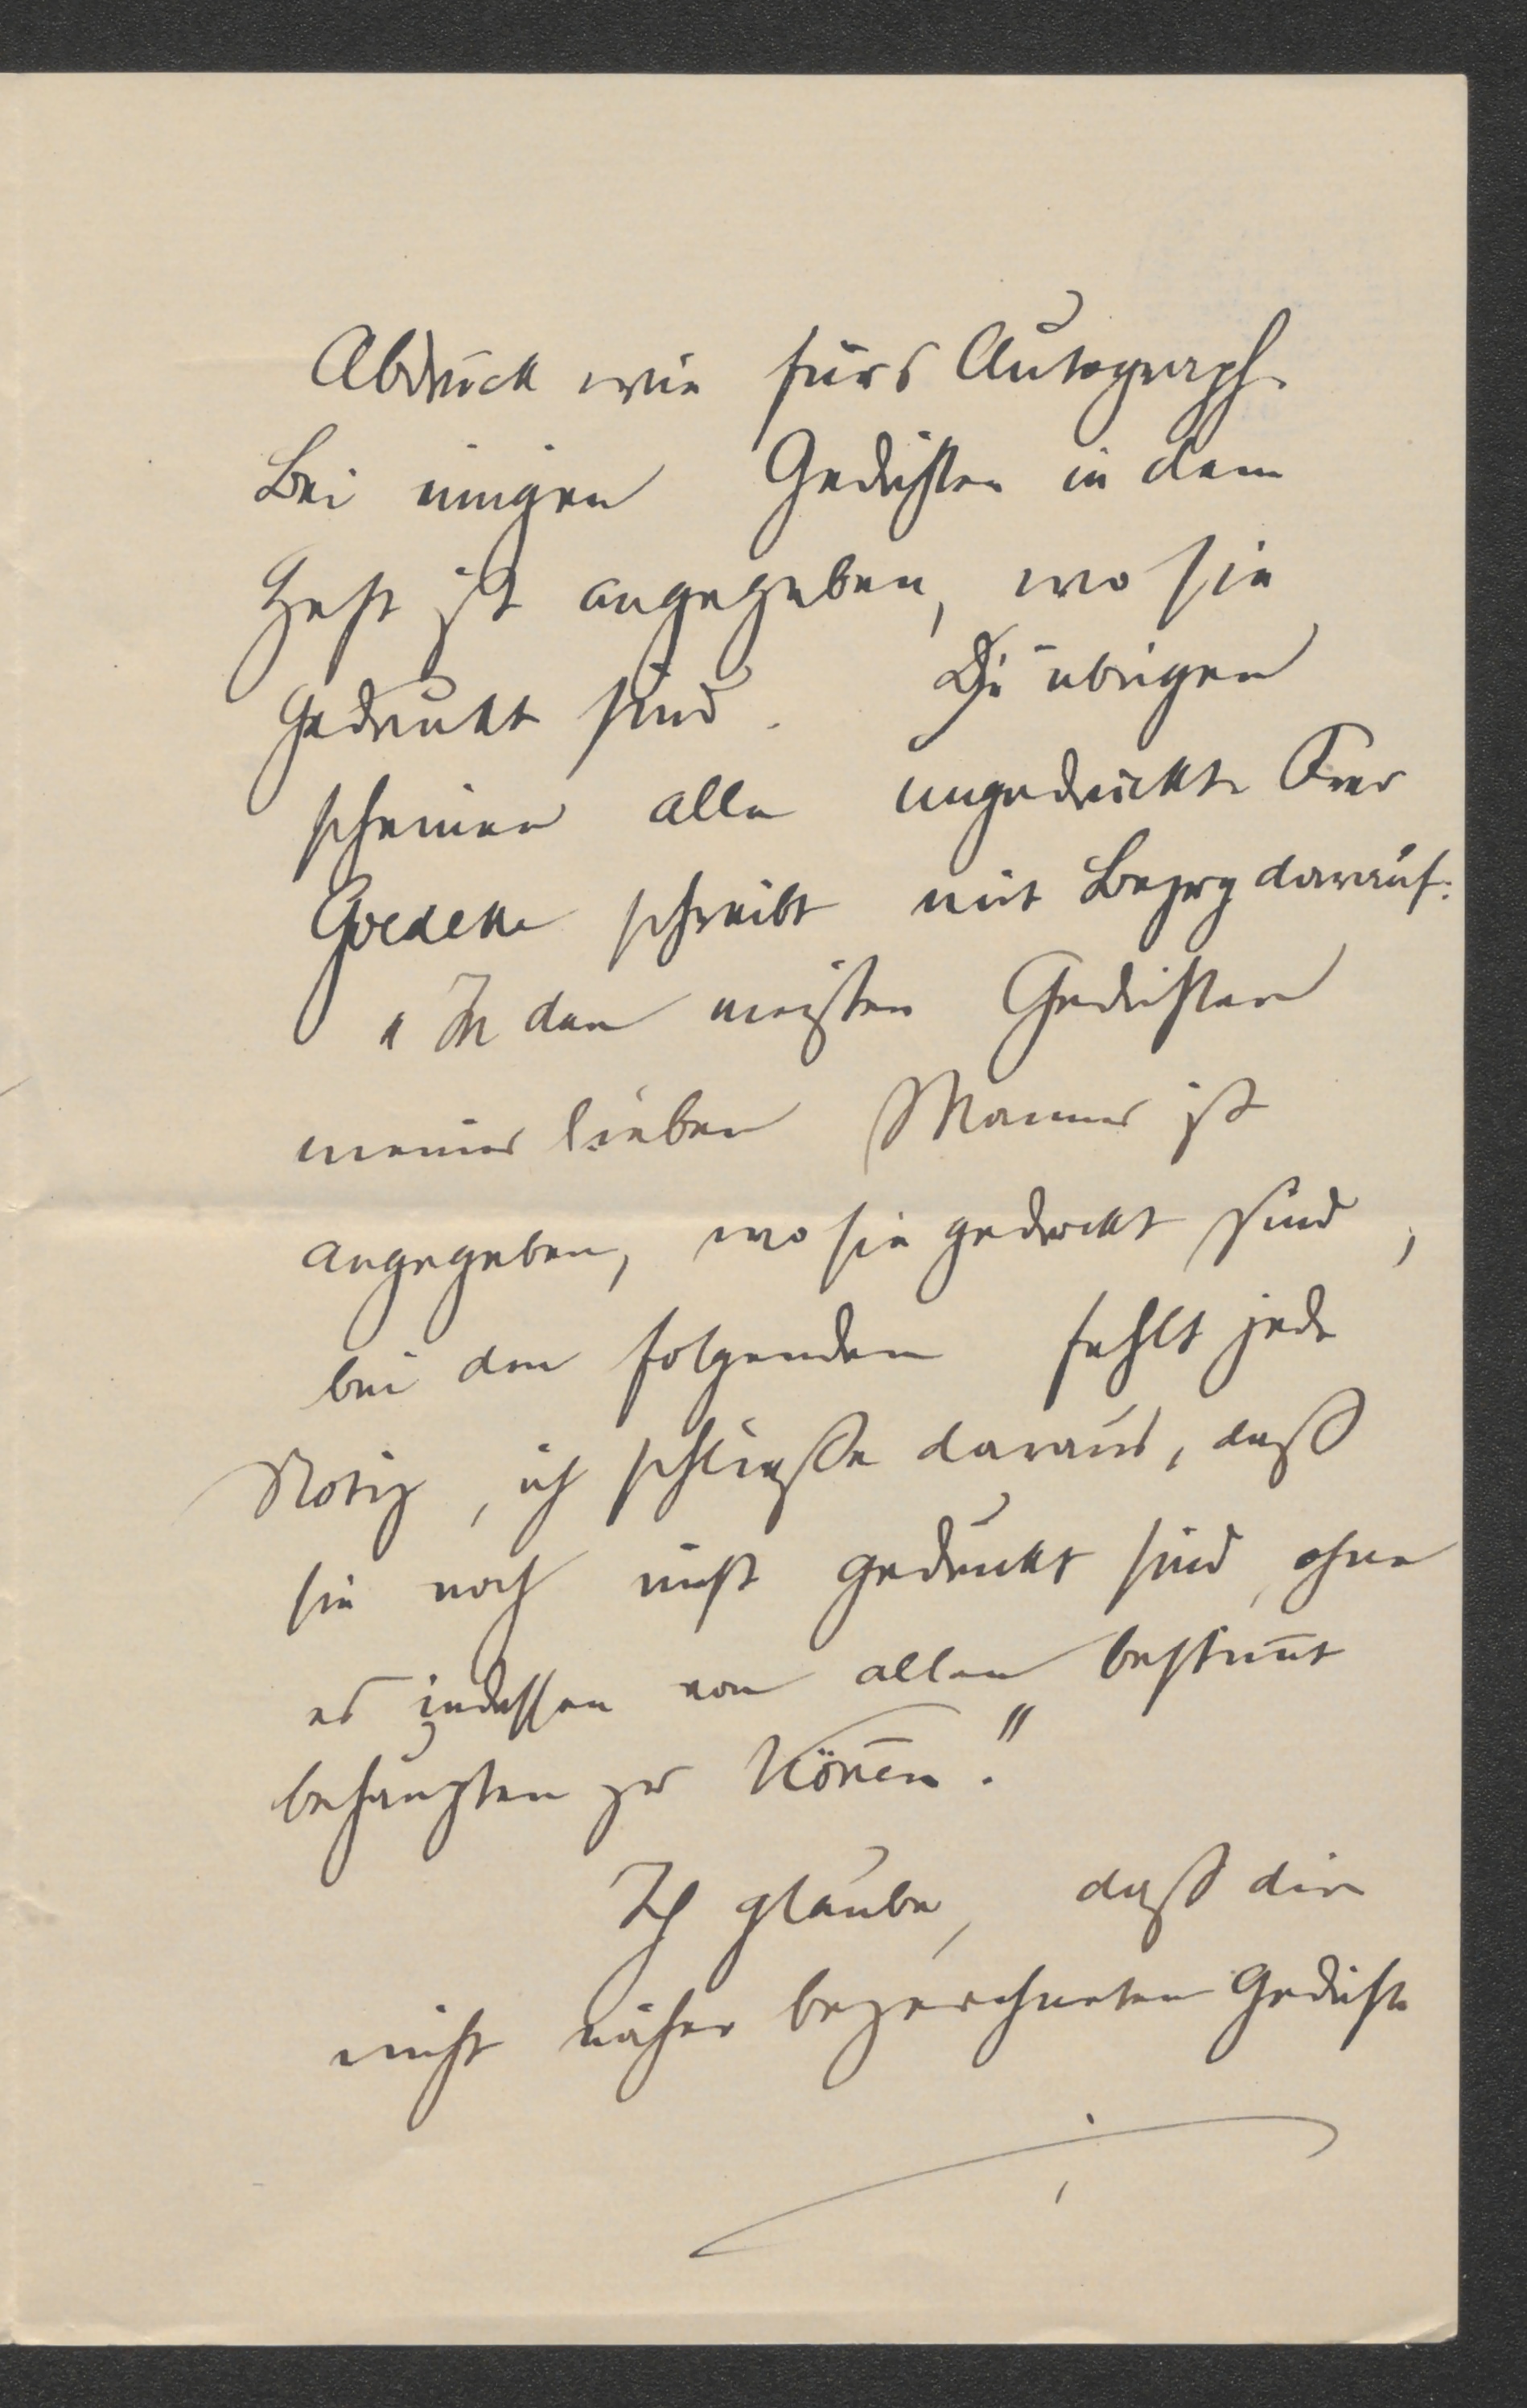 Abdruck wie fürs Autograph.
Bei einigen Gedichten in dem
Heft ist angegeben, wo sie
gedruckt sind. Die übrigen
scheinen alle ungedruckt. Frau
Goedeke schreibt mit Bezug darauf:
„In den meisten Gedichten
meines lieben Mannes ist
angegeben, wo sie gedruckt sind,
bei den folgenden fehlt jede
Notiz, ich schließe daraus, daß
sie noch nicht gedruckt sind, ohne
es indessen von allen bestim̅t
behaupten zu kön̅en."
Ich glaube, daß die
nicht näher bezeichneten Gedichte